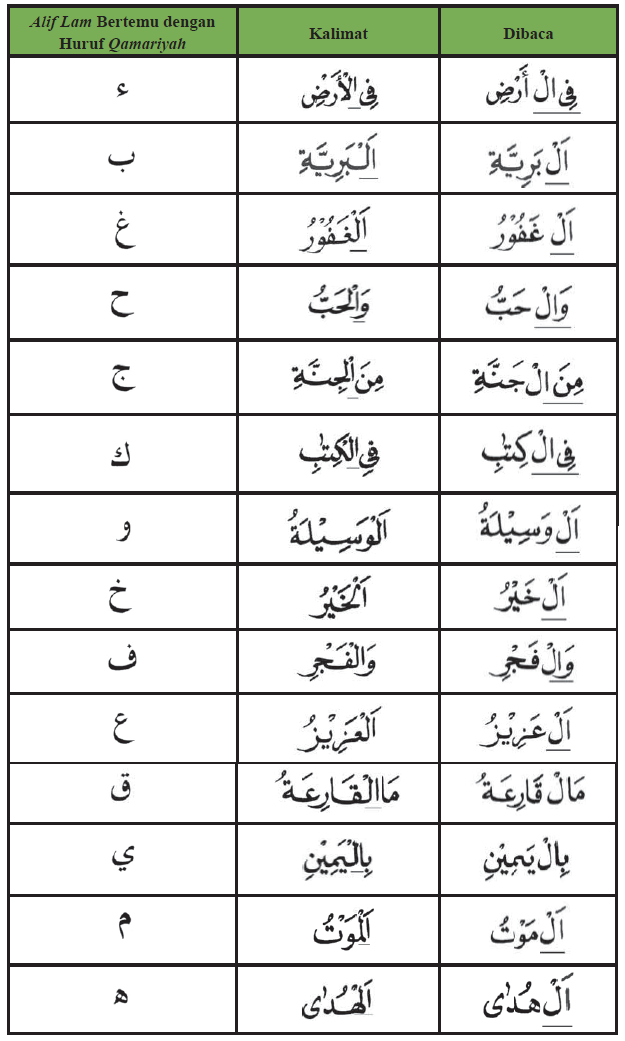 Alif Lam Bertemu dengan
Huruf Qamariyah
Kalimat
Dibaca
ء
فِى الْأَرْضِ
فِى الْ أَرْضِ
ب
اَلْبَرِيَّةِ
اَلْ بَرِيَّةِ
غ
اَلْغَفُوْرُ
اَلْ غَفُوْرُ
ح
وَالْحَبُّ
وَالْ حَبُّ
ج
مِنَ الْجِنَّةِ
مِنَ الْ جَنَّةِ
ك
فِى الْكِتٰبِ
فِى الْ كِتٰبِ
و
اَلْوَسِيْلَةُ
اَلْ وَسِيْلَةُ
خ
اَلْخَيْرُ
اَلْ خَيْرُ
ف
وَالْفَجْرِ
وَالْ فَجْرِ
ع
اَلْعَزِيْزُ
اَلْ عَزِيْزُ
ق
مَاالْقَارِعَةُ
مَالْ قَارِعَةُ
ي
بِالْيَمِيْنِ
بِالْ يَمِيْنِ
م
اَلْمَوْتُ
اَلْ مَوْتُ
ه
اَلْهُدٰى
اَلْ هُدٰى